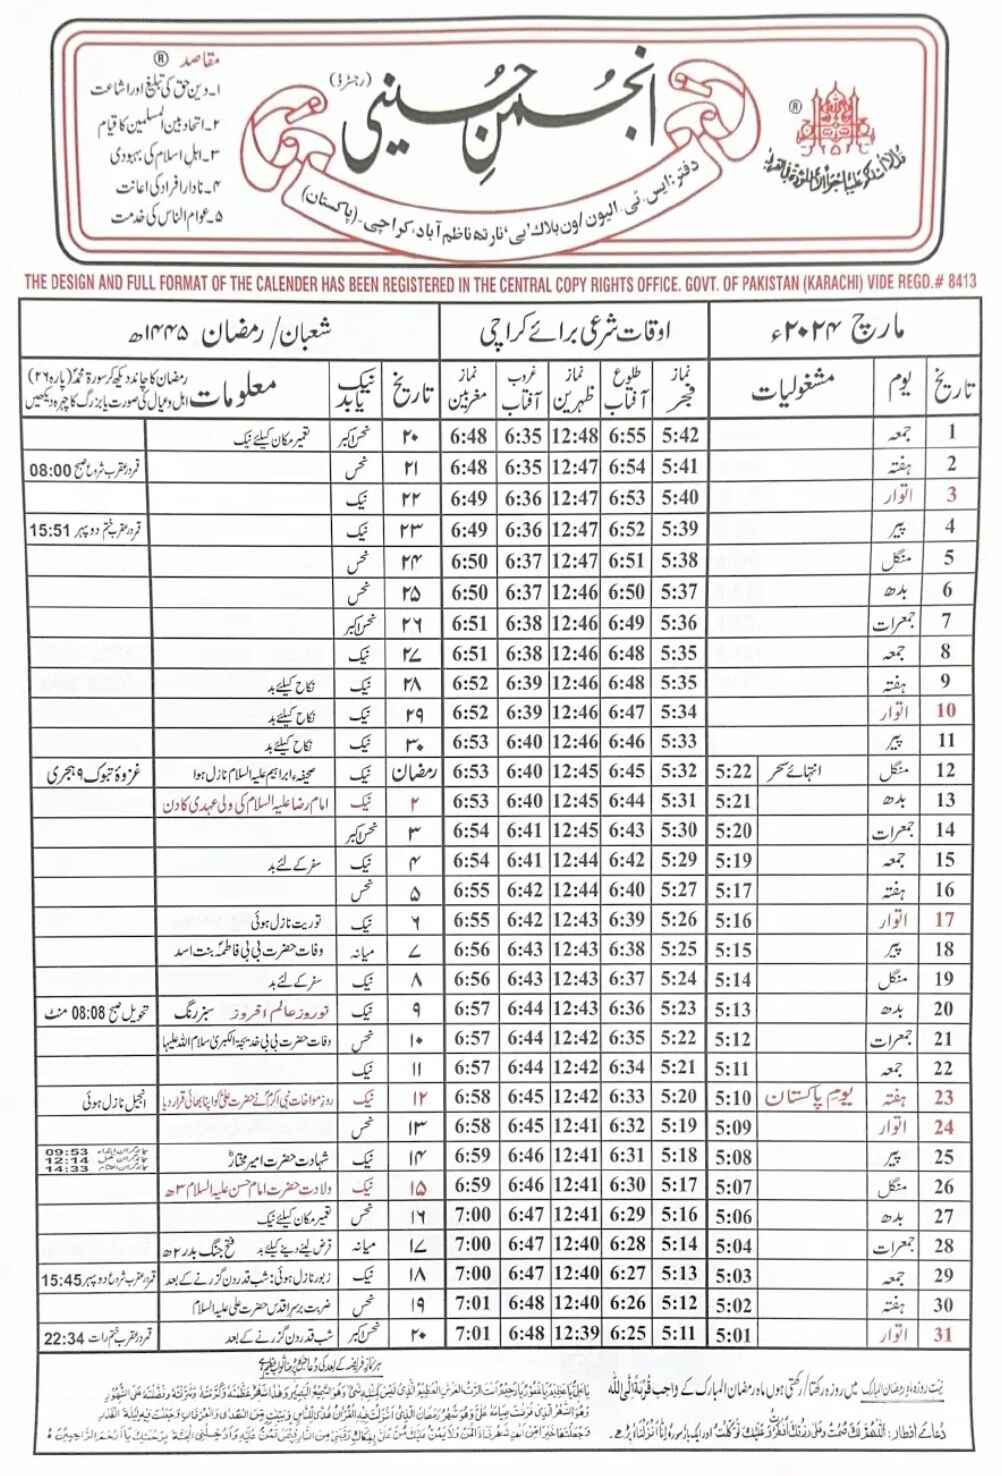 مقاصد ®
۱۔ دین حق کی تبلیغ اور اشاعت
۲۔ اتحاد بین المسلمین کا قیام
۳۔ اہل اسلام کی بہبودی
۴۔ نادار افراد کی اعانت
۵۔ عوام الناس کی خدمت
انجمن حسینی (رجسٹرڈ)
دفتر: ایس۔ٹی۔الیون/ون بلاک 'بی' نارتھ ناظم آباد، کراچی۔ (پاکستان)
®
THE DESIGN AND FULL FORMAT OF THE CALENDER HAS BEEN REGISTERED IN THE CENTRAL COPY RIGHTS OFFICE. GOVT. OF PAKISTAN (KARACHI) VIDE REGD.# 8413
مارچ ۲۰۲۴ء اوقات شرعی برائے کراچی شعبان/ رمضان ۱۴۴۵ھ
تاریخ یوم مشغولیات نماز فجر طلوع آفتاب نماز ظہرین غروب آفتاب نماز مغربین تاریخ نیک یا بد معلومات رمضان کا چاند دیکھ کر سورۃ محمدؐ (پارہ ۲۶) اہل و عیال کی صورت یا بزرگ کا چہرہ دیکھیں
1 جمعہ 5:42 6:55 12:48 6:35 6:48 ۲۰ نحس اکبر تعمیر مکان کیلئے نیک
2 ہفتہ 5:41 6:54 12:47 6:35 6:48 ۲۱ نحس قمر در عقرب شروع صبح 08:00
3 اتوار 5:40 6:53 12:47 6:36 6:49 ۲۲ نیک
4 پیر 5:39 6:52 12:47 6:36 6:49 ۲۳ نیک قمر در عقرب ختم دوپہر 15:51
5 منگل 5:38 6:51 12:47 6:37 6:50 ۲۴ نحس
6 بدھ 5:37 6:50 12:46 6:37 6:50 ۲۵ نحس
7 جمعرات 5:36 6:49 12:46 6:38 6:51 ۲۶ نحس اکبر
8 جمعہ 5:35 6:48 12:46 6:38 6:51 ۲۷ نیک
9 ہفتہ 5:35 6:48 12:46 6:39 6:52 ۲۸ نیک نکاح کیلئے بد
10 اتوار 5:34 6:47 12:46 6:39 6:52 ۲۹ نیک نکاح کیلئے بد
11 پیر 5:33 6:46 12:46 6:40 6:53 ۳۰ نیک نکاح کیلئے بد
12 منگل انتہائے سحر 5:22 5:32 6:45 12:45 6:40 6:53 رمضان نیک صحیفہ ابراہیم علیہ السلام نازل ہوا غزوۂ تبوک ۹ ہجری
13 بدھ 5:21 5:31 6:44 12:45 6:40 6:53 ۲ نیک امام رضا علیہ السلام کی ولی عہدی کا دن
14 جمعرات 5:20 5:30 6:43 12:45 6:41 6:54 ۳ نحس اکبر
15 جمعہ 5:19 5:29 6:42 12:44 6:41 6:54 ۴ نیک سفر کے لئے بد
16 ہفتہ 5:17 5:27 6:40 12:44 6:42 6:55 ۵ نحس
17 اتوار 5:16 5:26 6:39 12:43 6:42 6:55 ۶ نیک توریت نازل ہوئی
18 پیر 5:15 5:25 6:38 12:43 6:43 6:56 ۷ میانہ وفات حضرت بی بی فاطمہؑ بنت اسد
19 منگل 5:14 5:24 6:37 12:43 6:43 6:56 ۸ نیک سفر کے لئے بد
20 بدھ 5:13 5:23 6:36 12:43 6:44 6:57 ۹ نیک نوروز عالم افروز سبز رنگ تحویل صبح 08:08 منٹ
21 جمعرات 5:12 5:22 6:35 12:42 6:44 6:57 ۱۰ نحس وفات حضرت بی بی خدیجۃ الکبریٰ سلام اللہ علیہا
22 جمعہ 5:11 5:21 6:34 12:42 6:44 6:57 ۱۱ نیک
23 ہفتہ یومِ پاکستان 5:10 5:20 6:33 12:42 6:45 6:58 ۱۲ نیک روز مواخات نبی اکرمؐ نے حضرت علیؑ کو اپنا بھائی قرار دیا انجیل نازل ہوئی
24 اتوار 5:09 5:19 6:32 12:41 6:45 6:58 ۱۳ نحس
25 پیر 5:08 5:18 6:31 12:41 6:46 6:59 ۱۴ نیک شہادت حضرت امیر مختارؒ 09:53 12:14 14:33
26 منگل 5:07 5:17 6:30 12:41 6:46 6:59 ۱۵ نیک ولادت حضرت امام حسن علیہ السلام ۳ھ
27 بدھ 5:06 5:16 6:29 12:41 6:47 7:00 ۱۶ نحس تعمیر مکان کیلئے نیک
28 جمعرات 5:04 5:14 6:28 12:40 6:47 7:00 ۱۷ میانہ قرض لینے دینے کیلئے بد فتح جنگ بدر ۲ھ
29 جمعہ 5:03 5:13 6:27 12:40 6:47 7:00 ۱۸ نیک زبور نازل ہوئی: شب قدر دن گزرنے کے بعد قمر در عقرب شروع دوپہر 15:45
30 ہفتہ 5:02 5:12 6:26 12:40 6:48 7:01 ۱۹ نحس ضربت بر سر اقدس حضرت علی علیہ السلام
31 اتوار 5:01 5:11 6:25 12:39 6:48 7:01 ۲۰ نحس اکبر شب قدر دن گزرنے کے بعد قمر در عقرب ختم رات 22:34
نیت روزہ ماہ رمضان المبارک میں روزہ رکھتا/رکھتی ہوں ماہ رمضان المبارک کے واجب قُربۃً اِلَی اللہ
دُعائے افطار: اَللّٰھُمَّ لَکَ صُمْتُ وَعَلٰی رِزْقِکَ اَفْطَرْتُ وَعَلَیْکَ تَوَکَّلْتُ اور ایک بار سورہ اِنَّا اَنْزَلْنَاہُ پڑھے۔